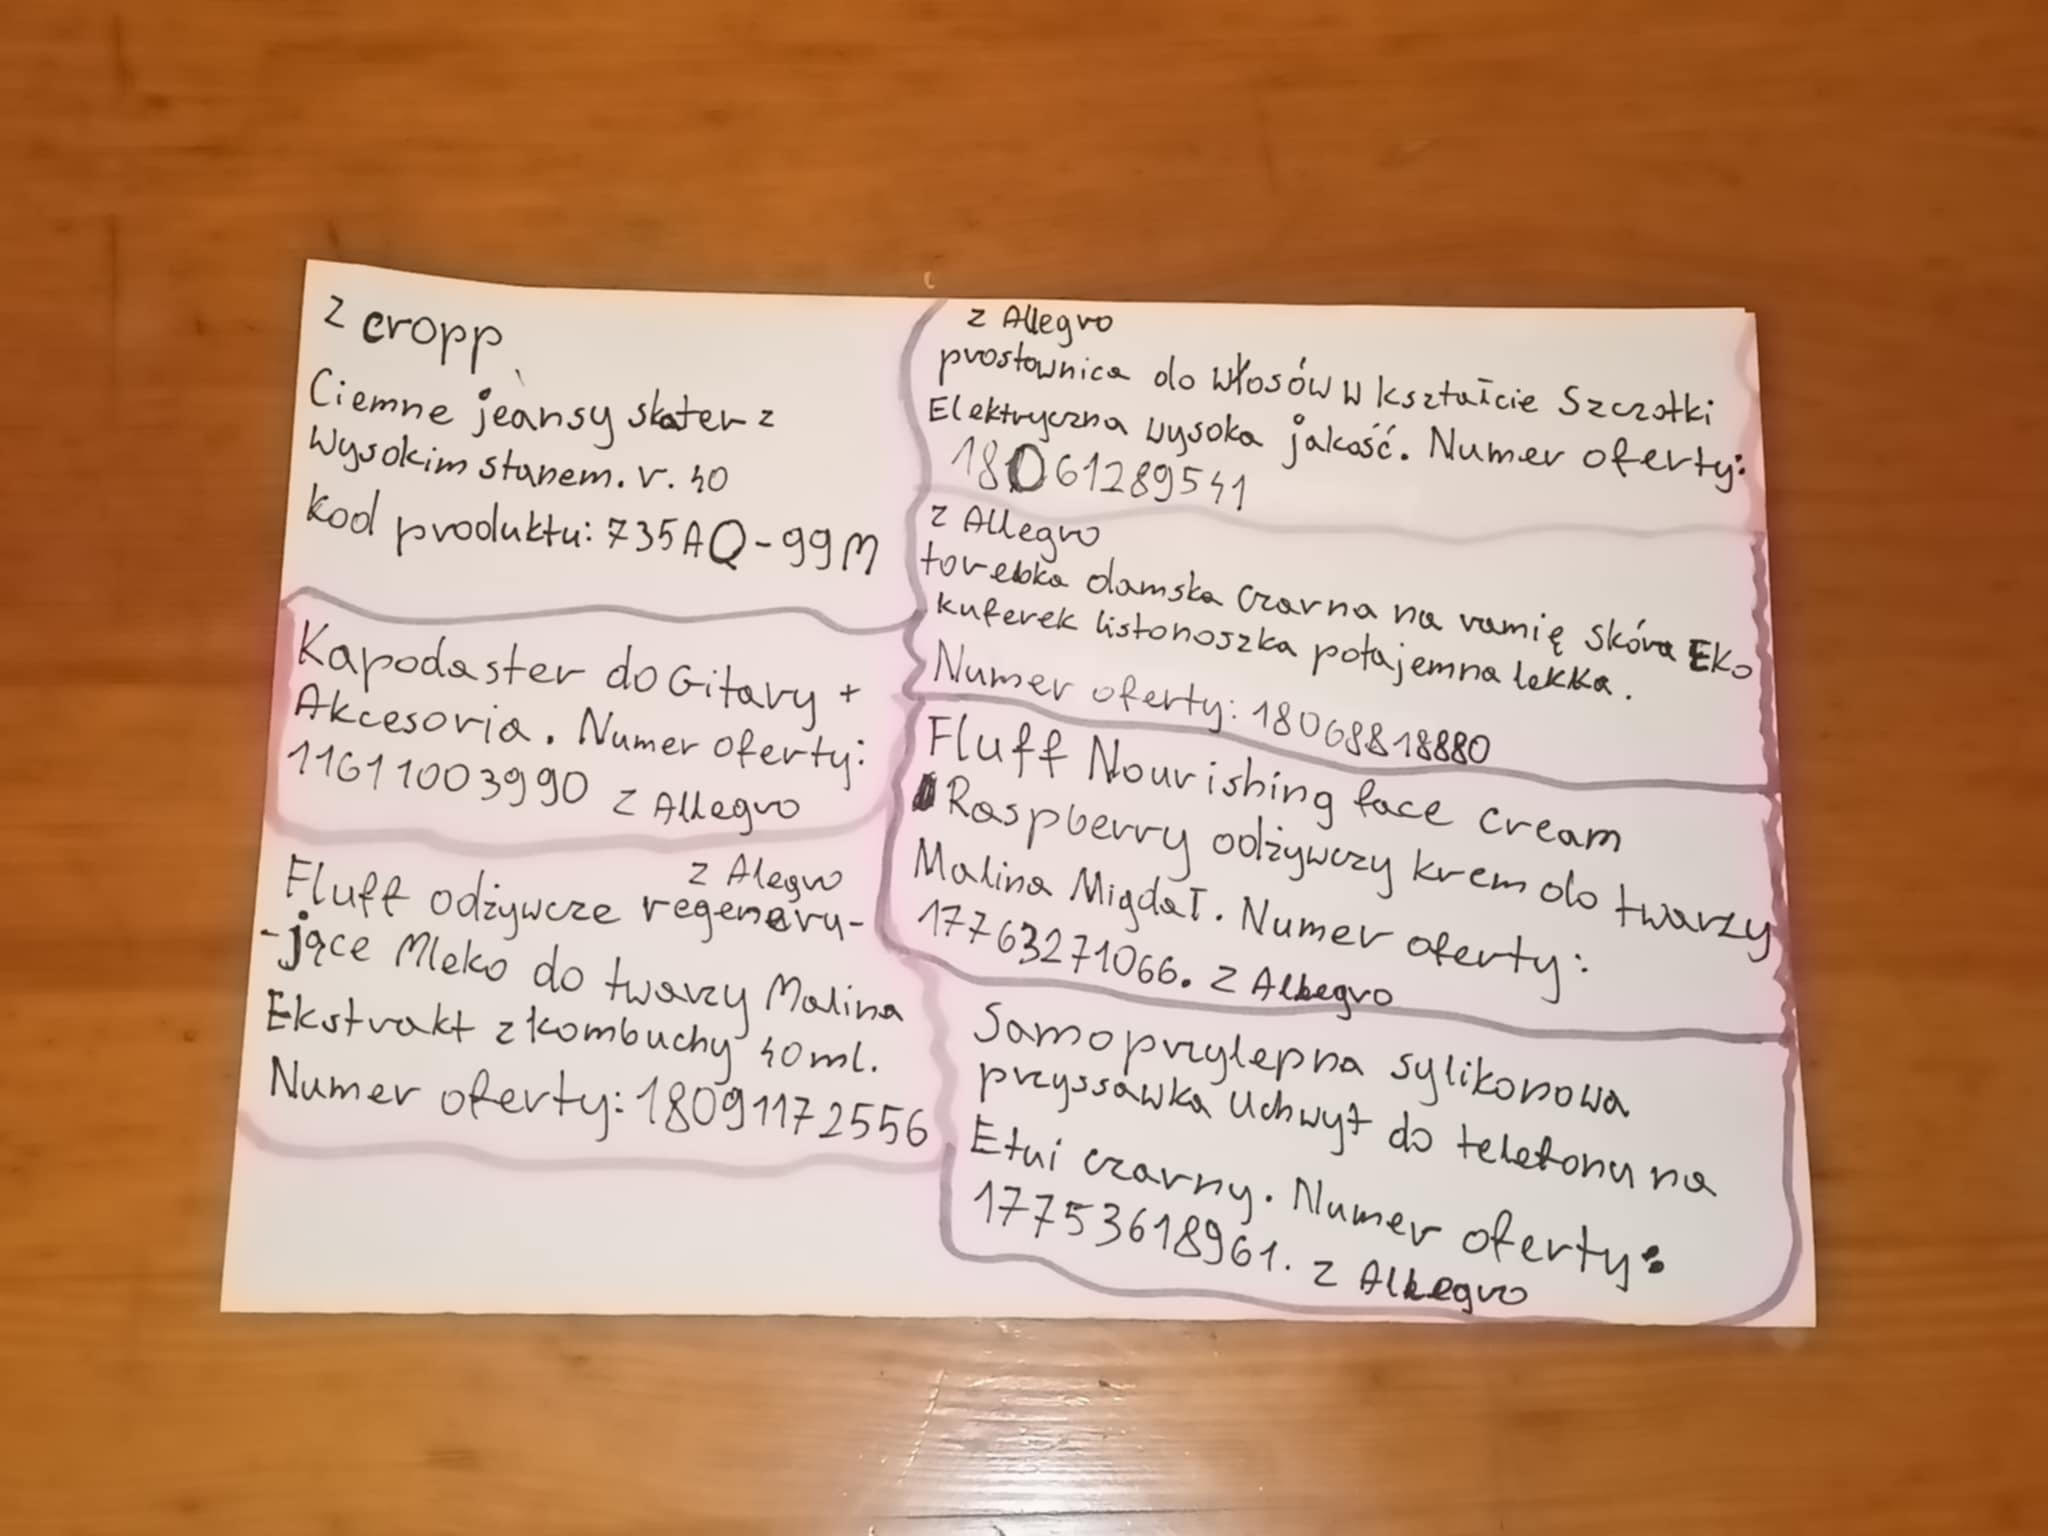 z cropp
Ciemne jeansy skater z
Wysokim stanem. r. 40
kod produktu: 735AQ-99M
Kapodaster do Gitary +
Akcesoria. Numer oferty:
11611003990 z Allegro
z Alegro
Fluff odżywcze regeneru-
-jące Mleko do twarzy Malina
Ekstrakt z kombuchy 40ml.
Numer oferty: 18091172556
z Allegro
prostownica do włosów w kształcie Szczotki
Elektryczna wysoka jakość. Numer oferty:
18061289541
z Allegro
torebka damska czarna na ramię skóra Eko
kuferek listonoszka pojemna lekka.
Numer oferty: 18068818880
Fluff Nourishing face cream
Raspberry odżywczy krem do twarzy
Malina Migdał. Numer oferty:
17763271066. z Allegro
Samoprzylepna sylikonowa
przyssawka Uchwyt do telefonu na
Etui czarny. Numer oferty:
17753618961. z Allegro